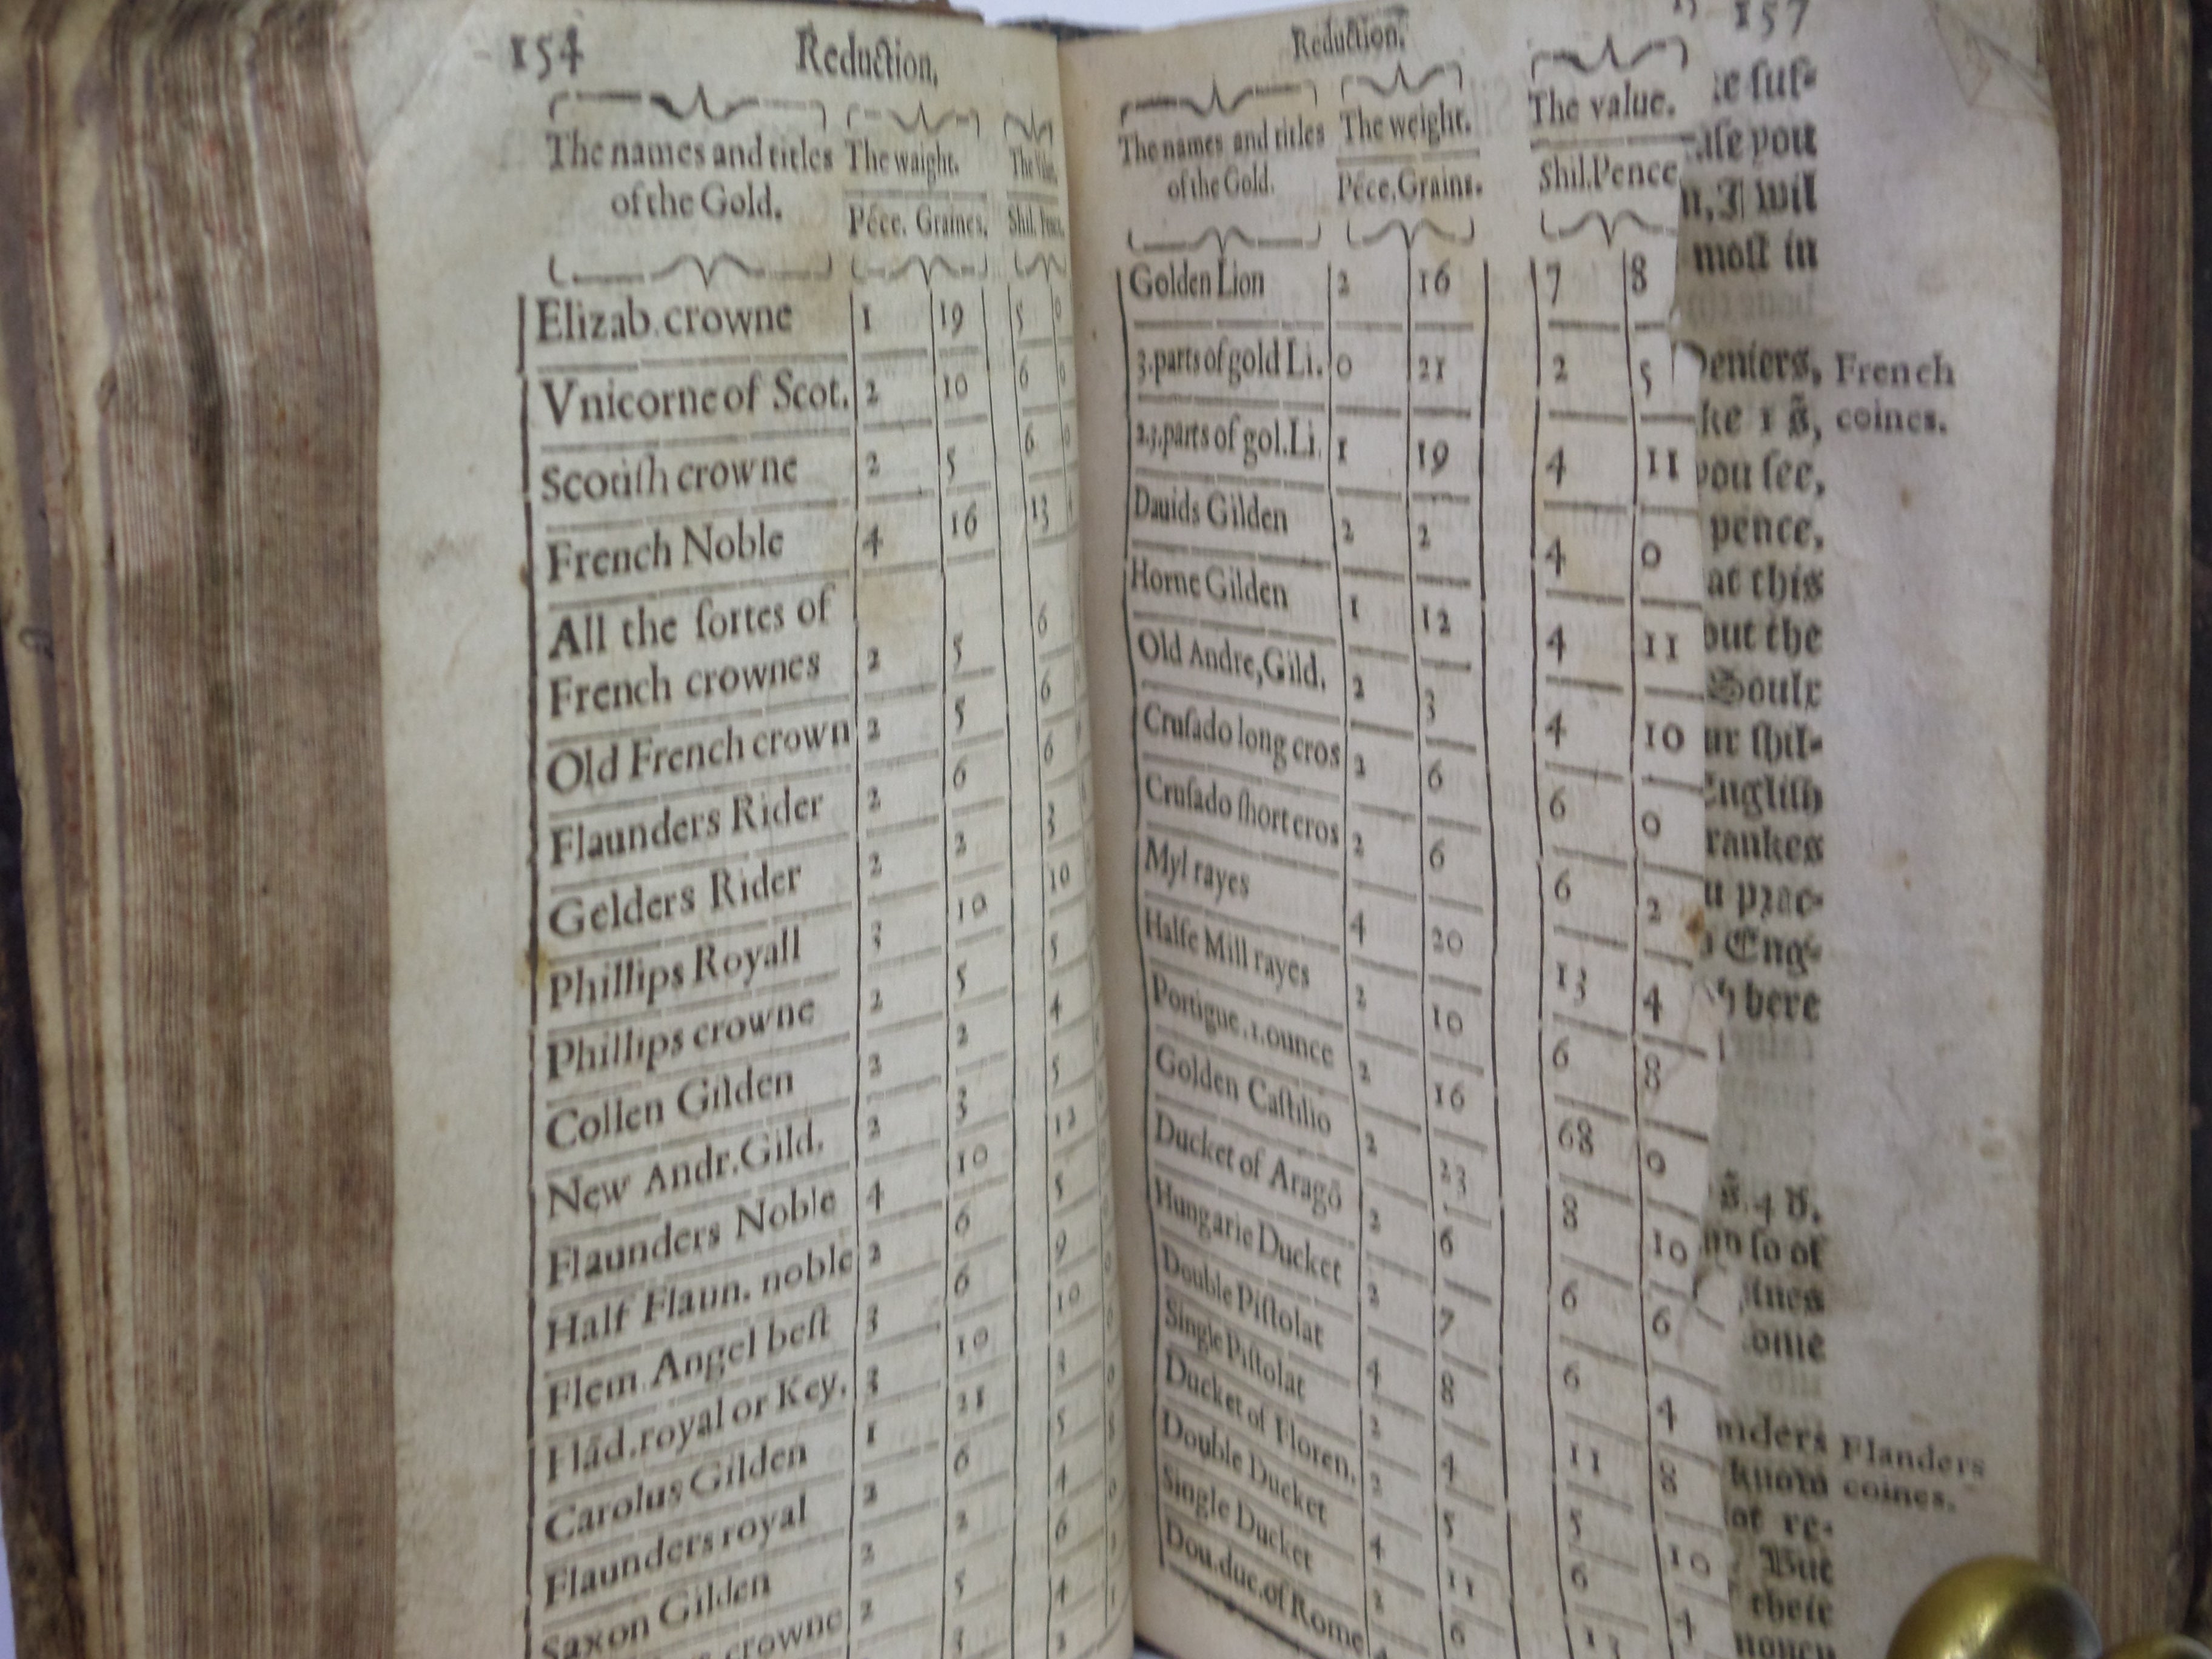 154 Reduction,
The names and titles The waight. The Val.
of the Gold. Péce. Graines, Shil. Pence.
Elizab. crowne 1 19 5 0
Vnicorne of Scot. 2 10 6 0
Scotiſh crowne 2 5 6 0
French Noble 4 16 13 4
All the ſortes of
French crownes 2 5 6
Old French crown 2 5 6
Flaunders Rider 2 6 6
Gelders Rider 2 2 3
Phillips Royall 3 10 10
Phillips crowne 2 5 5
Collen Gilden 2 2 4
New Andr. Gild. 2 3 5
Flaunders Noble 4 10 12
Half Flaun. noble 2 6 5
Flem Angel beſt 3 6 9
Flãd. royal or Key. 3 10 10
Carolus Gilden 1 21 3
Flaunders royal 2 6 5
Saxon Gilden 2 2 4
crowne 2 5 6
Reduction. 157
The names and titles The weight. The value.
of the Gold. Péce. Grains. Shil. Pence
Golden Lion 2 16 7 8
3. parts of gold Li. 0 21 2 5
2.3. parts of gol. Li. 1 19 4 11
Dauids Gilden 2 2 4 0
Horne Gilden 1 12 4 11
Old Andre, Gild. 2 3 4 10
Cruſado long cros 2 6 6 0
Cruſado ſhort cros 2 6 6 2
Myl rayes 4 20 13 4
Halfe Mill rayes 2 10 6 8
Portigue .1. ounce 2 16 68 0
Golden Caſtilio 2 23 8 10
Ducket of Aragõ 2 6 6 6
Hungarie Ducket 2 7 6 4
Double Piſtolat 4 8 11 8
Single Piſtolat 2 4 5 10
Ducket of Floren. 2 5 6 4
Double Ducket 4 11 13
Single Ducket 2 6
Dou. duc. of Rome 4
e ſuf-
aſe you
n, I wil
moſt in
Deniers, French
ke 1 ß, coines.
you ſee,
pence,
at this
out the
Soulx
ur ſhil-
Engliſh
rankes
u prac-
Eng-
here
ß. 4 d.
no ſo of
ines
ome
nders Flanders
know coines.
ot re-
But
their
money